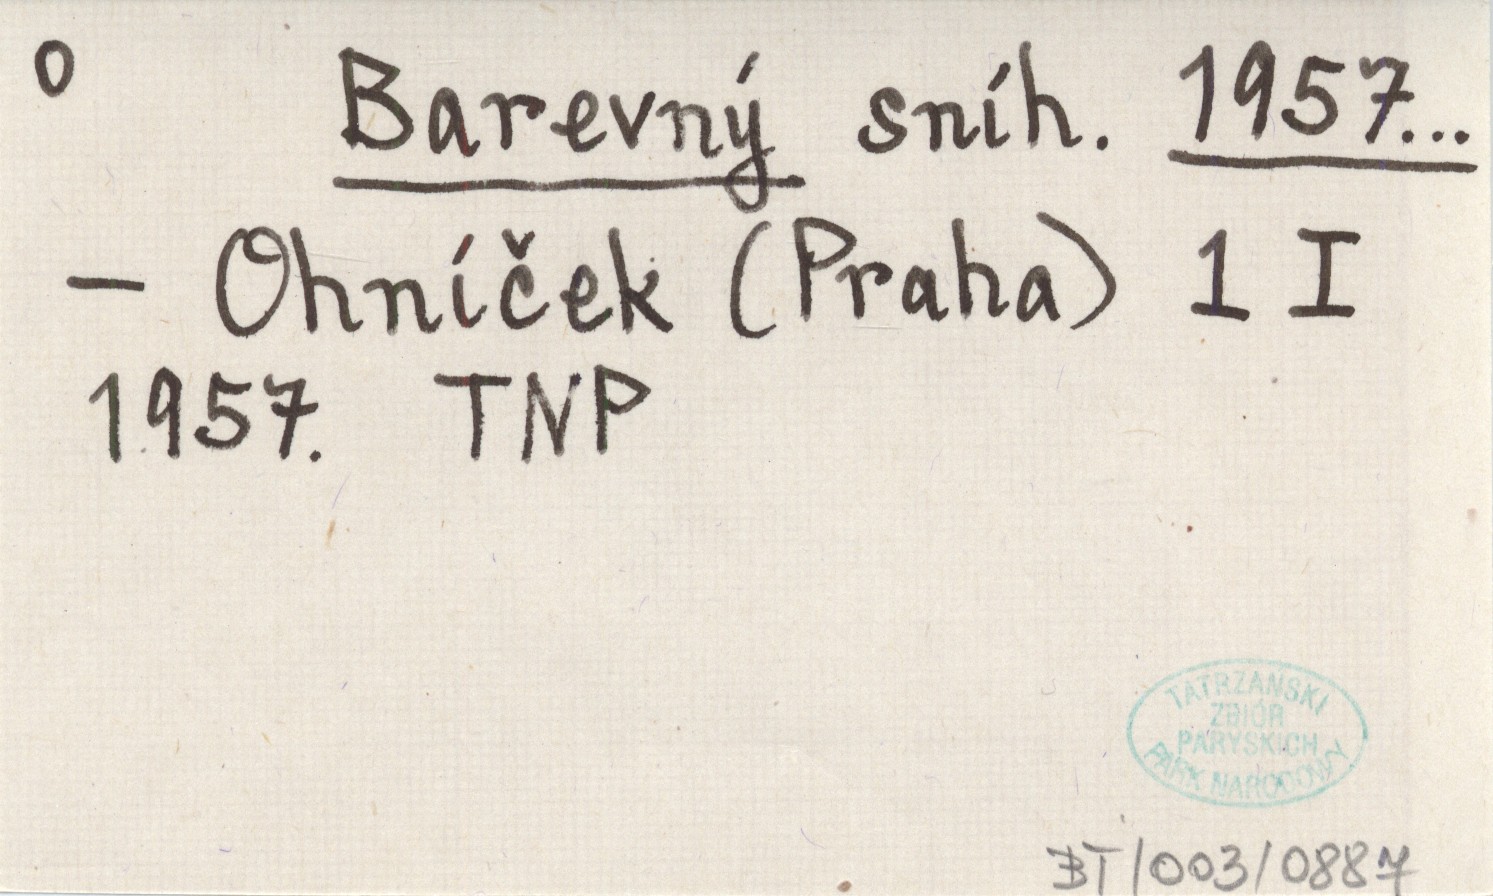 o Barevný sníh. 1957...
– Ohníček (Praha) 1 I
1957. TNP
TATRZAŃSKI
ZBIÓR
PARYSKICH
PARK NARODOWY
BT/003/0887